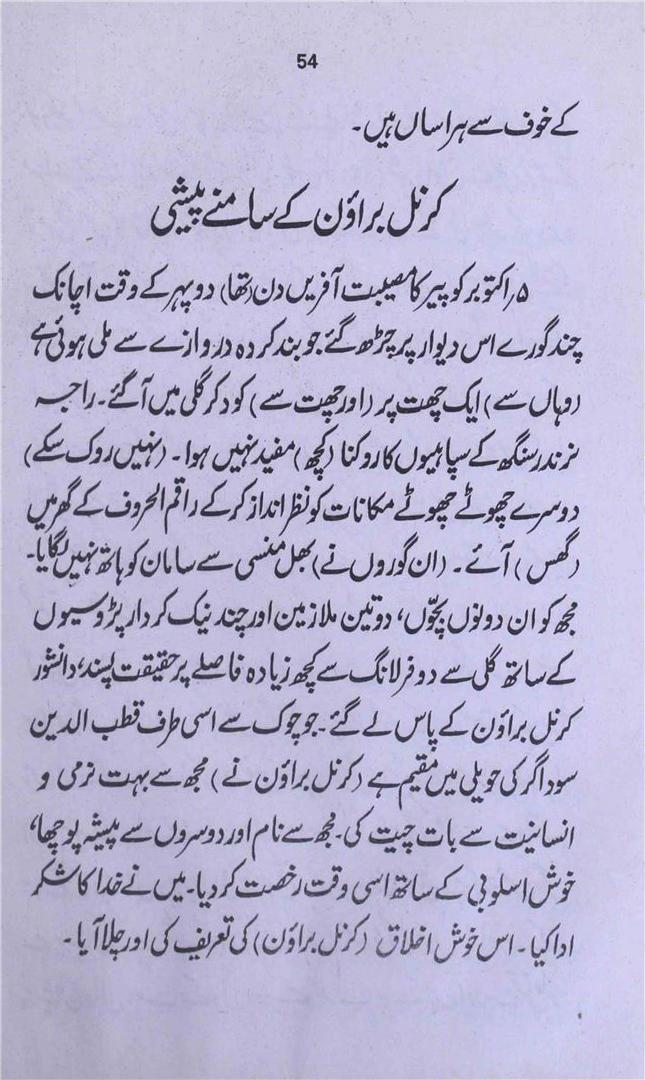 54
کے خوف سے ہراساں ہیں۔
کرنل براؤن کے سامنے پیشی
۵ ؍اکتوبر کو پیر کا مصیبت آفریں دن (تھا) دوپہر کے وقت اچانک
چند گورے اس دیوار پر چڑھ گئے جو بند کردہ دروازے سے ملی ہوئی ہے
(وہاں سے) ایک چھت پر (اور چھت سے) کود کر گلی میں آگئے۔ راجہ
نرندر سنگھ کے سپاہیوں کا روکنا (کچھ) مفید نہیں ہوا۔ (نہیں روک سکے)
دوسرے چھوٹے چھوٹے مکانات کو نظر انداز کرکے راقم الحروف کے گھر میں
(گھس) آئے۔ (ان گوروں نے) بھل منسی سے سامان کو ہاتھ نہیں لگایا۔
مجھ کو ان دونوں بچّوں، دو تین ملازمین اور چند نیک کردار پڑوسیوں
کے ساتھ گلی سے دو فرلانگ سے کچھ زیادہ فاصلے پر حقیقت پسند، دانشور
کرنل براؤن کے پاس لے گئے۔ جو چوک سے اسی طرف قطب الدین
سوداگر کی حویلی میں مقیم ہے (کرنل براؤن نے) مجھ سے بہت نرمی و
انسانیت سے بات چیت کی۔ مجھ سے نام اور دوسروں سے پیشہ پوچھا،
خوش اسلوبی کے ساتھ اسی وقت رخصت کردیا۔ میں نے خدا کا شکر
ادا کیا۔ اس خوش اخلاق (کرنل براؤن) کی تعریف کی اور چلا آیا۔